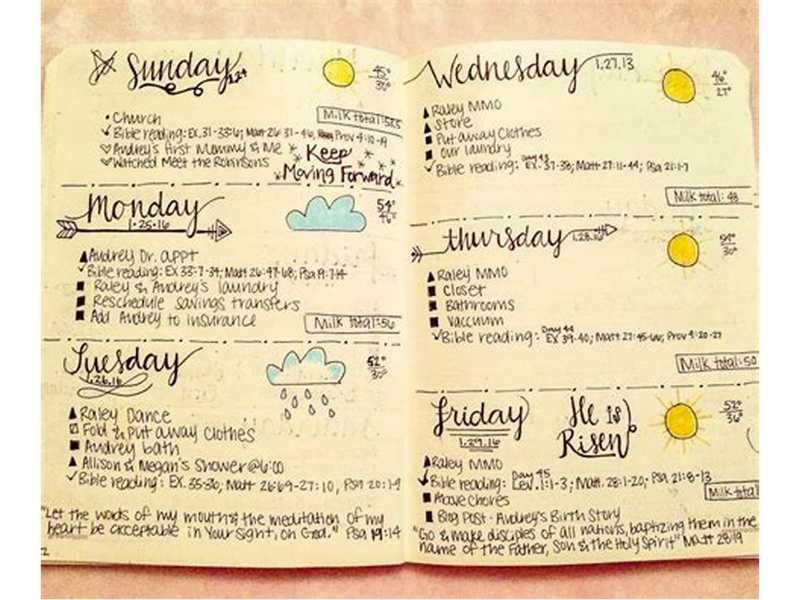 Sunday 1.24
45°
30°
Milk total: 56.5
• Church
Bible reading: Ex. 31-33:6; Matt 26:31-46, Prov 4:10-19
Audrey's first Mommy & Me
Watched Meet the Robinsons
Keep
Moving Forward
Monday
1.25.16
54°
46°
Audrey Dr. appt
Bible reading: EX 33:7-34; Matt 26:47-68; Psa 19:7-14
Raley & Audrey's laundry
Reschedule savings transfers
Add Audrey to insurance
Milk total: 56
Tuesday
1.26.16
52°
30°
Raley Dance
Fold & Put away clothes
Audrey bath
Allison & Megan's Shower @ 6:00
Bible reading: EX. 35-36; Matt 26:69-27:10, PSA 20:1-9
"Let the words of my mouth & the meditation of my
heart be acceptable in Your Sight, oh God." Psa 19:14
2
Wednesday 1.27.13
46°
27°
Raley MMO
Store
Put away Clothes
Our laundry
Bible reading: Day 43 Ex. 37-38; Matt 27:11-44; Psa 21:1-7
Milk total: 48
Thursday 1.28.16
54°
30°
Raley MMO
Closet
Bathrooms
Vaccuum
Bible reading: Day 44 EX 39-40; Matt 27:45-66; Prov 4:20-27
Milk total: 50
Friday
1.29.16
He Is
Risen
52°
36°
Raley MMO
Bible reading: Day 45 Lev. 1:1-3; Matt. 28:1-20; PSA 21:8-13
Chores
Blog Post: Audrey's Birth Story
Milk total
"Go & make disciples of all nations, baptizing them in the
name of the Father, Son & the Holy Spirit" Matt 28:19